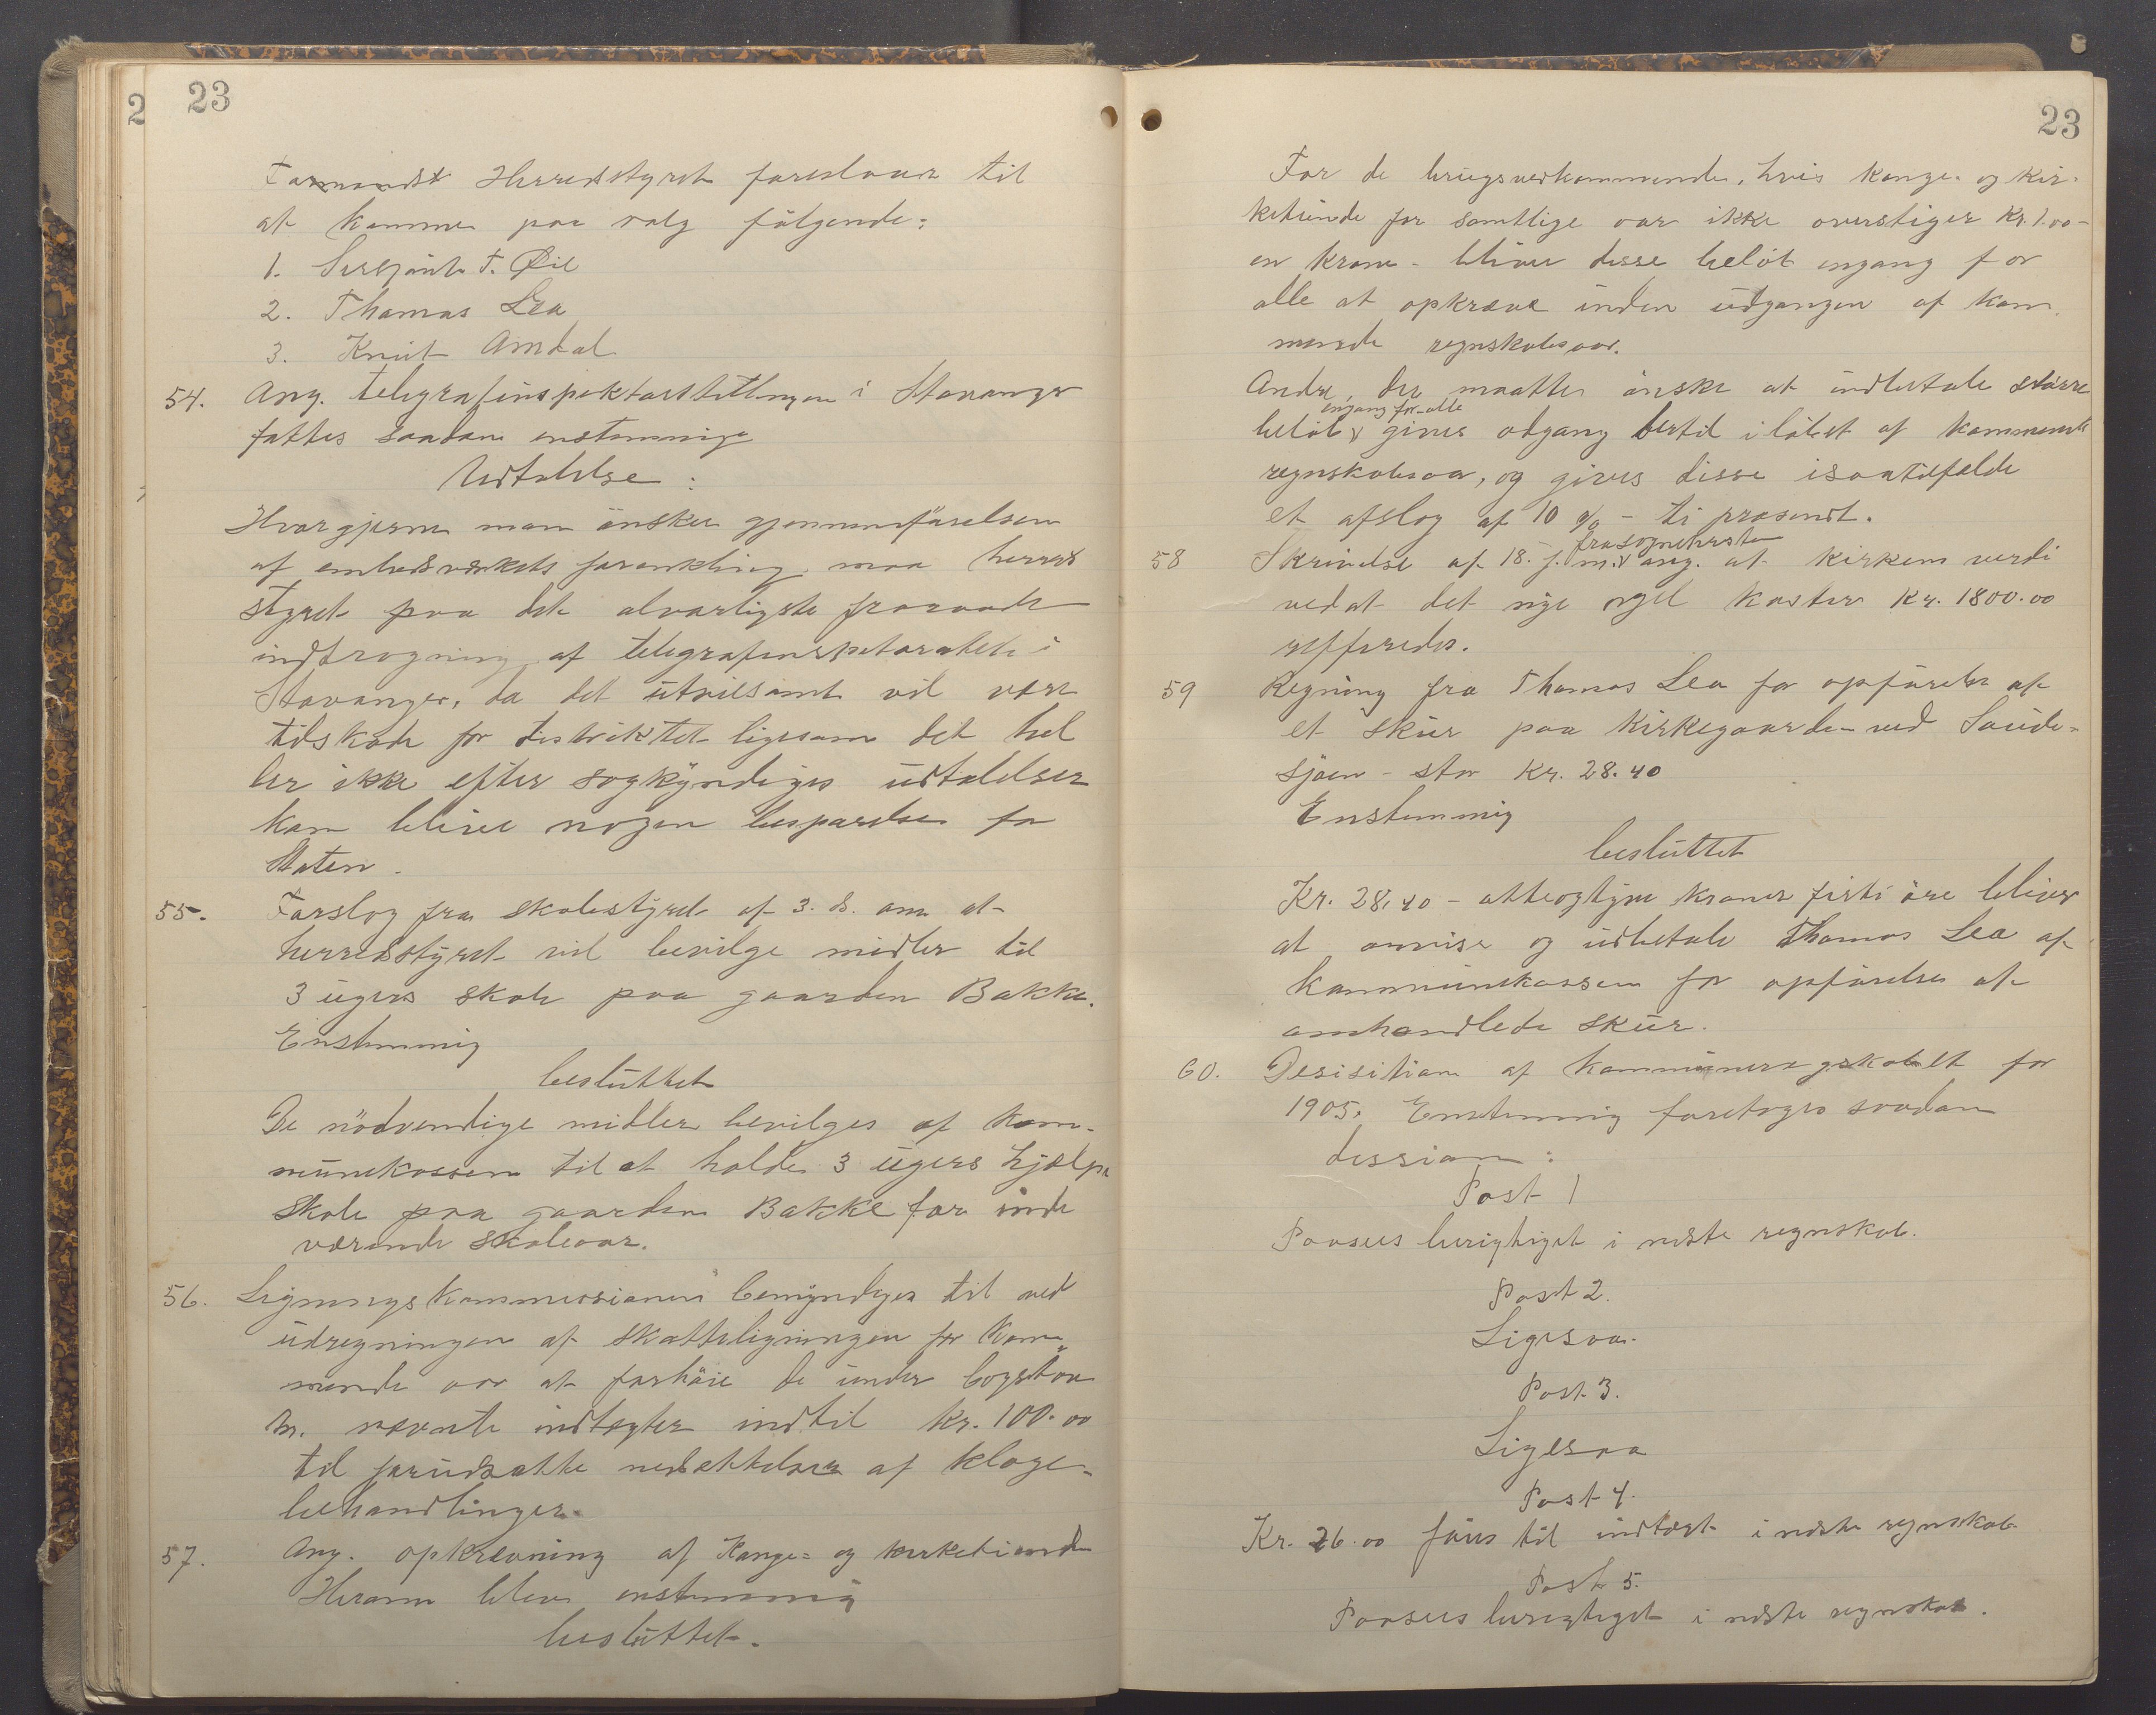 2 23
Formandst Herredsstyret foreslaar til
at komme paa valg fölgende:
1. Sersjant T. Øie
2. Thomas Lea
3. Knut Amdal
54. Ang. telegrafinspektörstillingen i Stavanger
fattes saadan enstemmige
Udtalelse:
Hvor gjerne man önsker gjennemförelsen
af embedsverkets forenkling, maa herreds
styret paa det alvarligste fraraade
inddragning af telegrafinspektoratet i
Stavanger, da det utvilsomt vil være
tilskade for distriktet ligesom det hel
ler ikke efter sagkyndiges udtalelser
kan blive nogen besparelse for
Staten.
55. Forslag fra skolestyret af 3. ds. om at
herredsstyret vil bevilge midler til
3 ugers skole paa gaarden Bakke.
Enstemmig
besluttet
De nödvendige midler bevilges af kom-
munekassen til at holde 3 ugers hjælpe
skole paa gaarden Bakke for inde
værende skoleaar.
56. Ligningskommissionen bemyndiges til ved
udregningen af skatteligningen for kom-
mende aar at forhöie de under bogstav
m. nævnte indtægter indtil kr. 100.00
til forudsatte nedsættelser af klage-
behandlinger.
57. Ang. opkrævning af Konge- og kirketiende
Herom blev enstemmig
besluttet.
23
For de brugsvedkommende, hvis konge- og kir-
ketiende for samtlige aar ikke overstiger Kr. 1.00 -
en krone - bliver disse belöb engang for
alle at opkræve inden udgangen af kom
mende regnskabsaar.
Andre, der maatte önske at indbetale större
engang for alle
belöb gives adgang dertil i löbet af kommende
regnskabsaar, og gives disse isaatilfælde
et afslag af 10 % - ti prosendt.
fra sognepresten
58 Skrivelse af 18. f. m. ang. at kirkens verdi
ved at det nye orgel koster Kr. 1800.00
refferedes.
59 Regning fra Thomas Lea for opförelse af
et skur paa Kirkegaarden ved Soude-
sjöen - stor Kr. 28.40
Enstemmig
besluttet
Kr. 28.40 - otteogtyve kroner firti öre bliver
at anvise og udbetale Thomas Lea af
kommunekassen for opförelse af
omhandlede skur.
60. Desisition af kommuneregnskabet for
1905. Enstemmig foretoges saadan
dession:
Post 1
Paasees berigtiget i neste regnskab.
Post 2.
Ligesaa.
Post 3.
Ligesaa
Post 4.
Kr. 26.00 föres til indtægt i neste regnskab
Post 5.
Paasees berigtiget i neste regnskab.